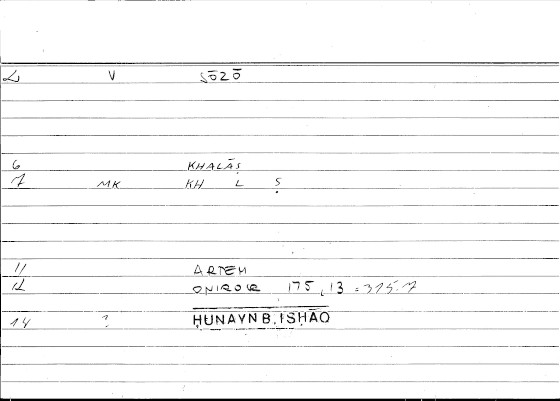 2 V SŌZŌ
6 KHALĀṢ
7 MK KH L Ṣ
11 ARTEM
12 ONIROCR 175, 13 = 325.7
14 ? ḤUNAYN B. ISḤĀQ